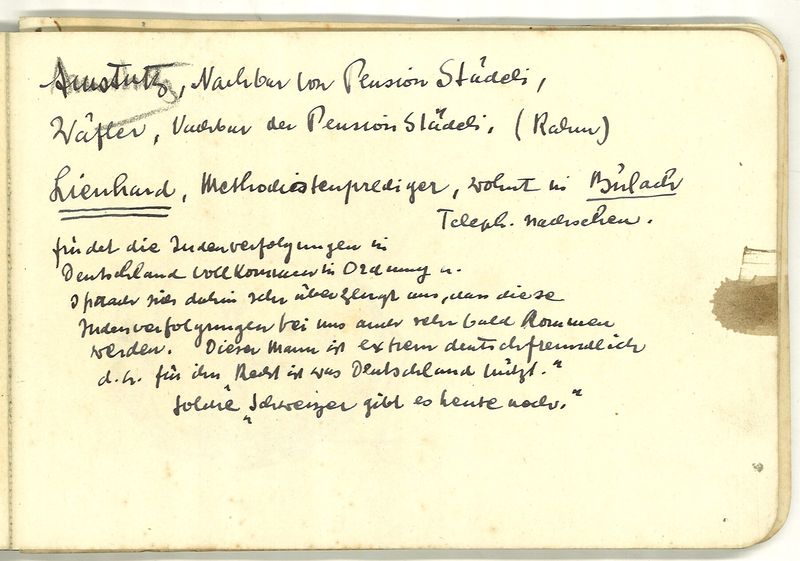 Amstutz, Nachbar von Pension Städeli,
Wäfler, Nachbar der Pension Städeli. (Rahm)
Lienhard, Methodistenprediger, wohnt in Bülach
Teleph. nachsehen.
findet die Judenverfolgungen in
Deutschland vollkommen in Ordnung u.
sprach sich dahin sehr überzeugt aus, dass diese
Judenverfolgungen bei uns auch sehr bald kommen
werden. Dieser Mann ist extrem deutschfreundlich
d.h. für ihn Recht ist was Deutschland nützt."
Solche „Schweizer gibt es heute noch."